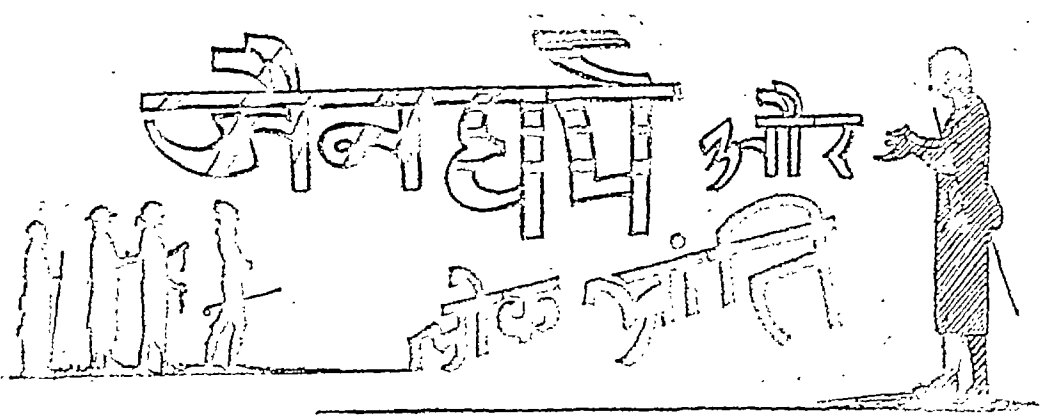 जैन धर्म और
लोक क्रांति